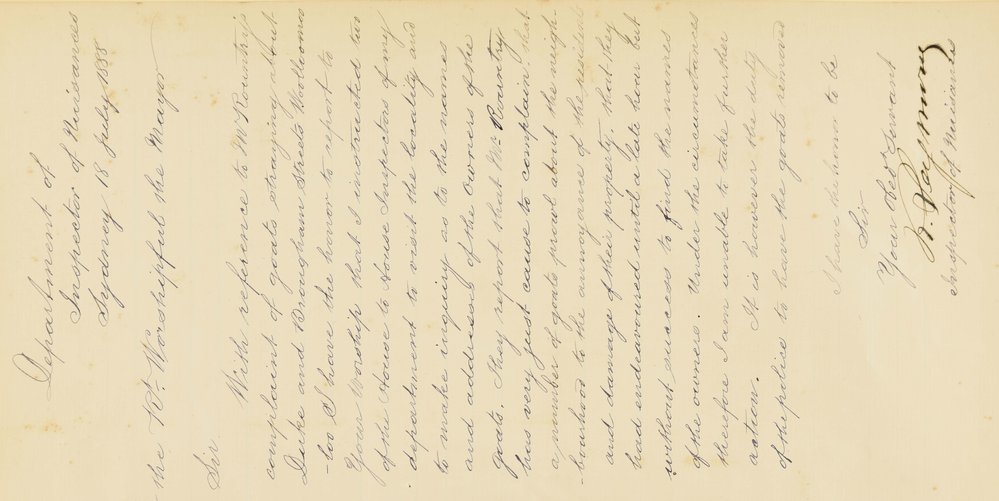 Department of
Inspector of Nuisances
Sydney 18 July 1888
The Rt. Worshipful the Mayor
Sir.
With reference to Mr Rountrys
complaint of goats straying about
Duke and Brougham Streets Woolloomoo
-loo I have the honor to report to
Your Worship that I instructed two
of the House to House Inspectors of my
department to visit the locality and
to make inquiry as to the names
and address of the owners of the
goats. They report that Mr. Rountry
has very just cause to complain; that
a number of goats prowl about the neigh-
-bourhood to the annoyance of the residents
and damage of their property, that they
had endeavoured until a late hour but
without success to find the names
of the owners. Under the circumstances
therefore I am unable to take further
action. It is however the duty
of the police to have the goats removed
I have the honor to be
Sir
Your Obdt Servant
Seymour
Inspector of Nuisances